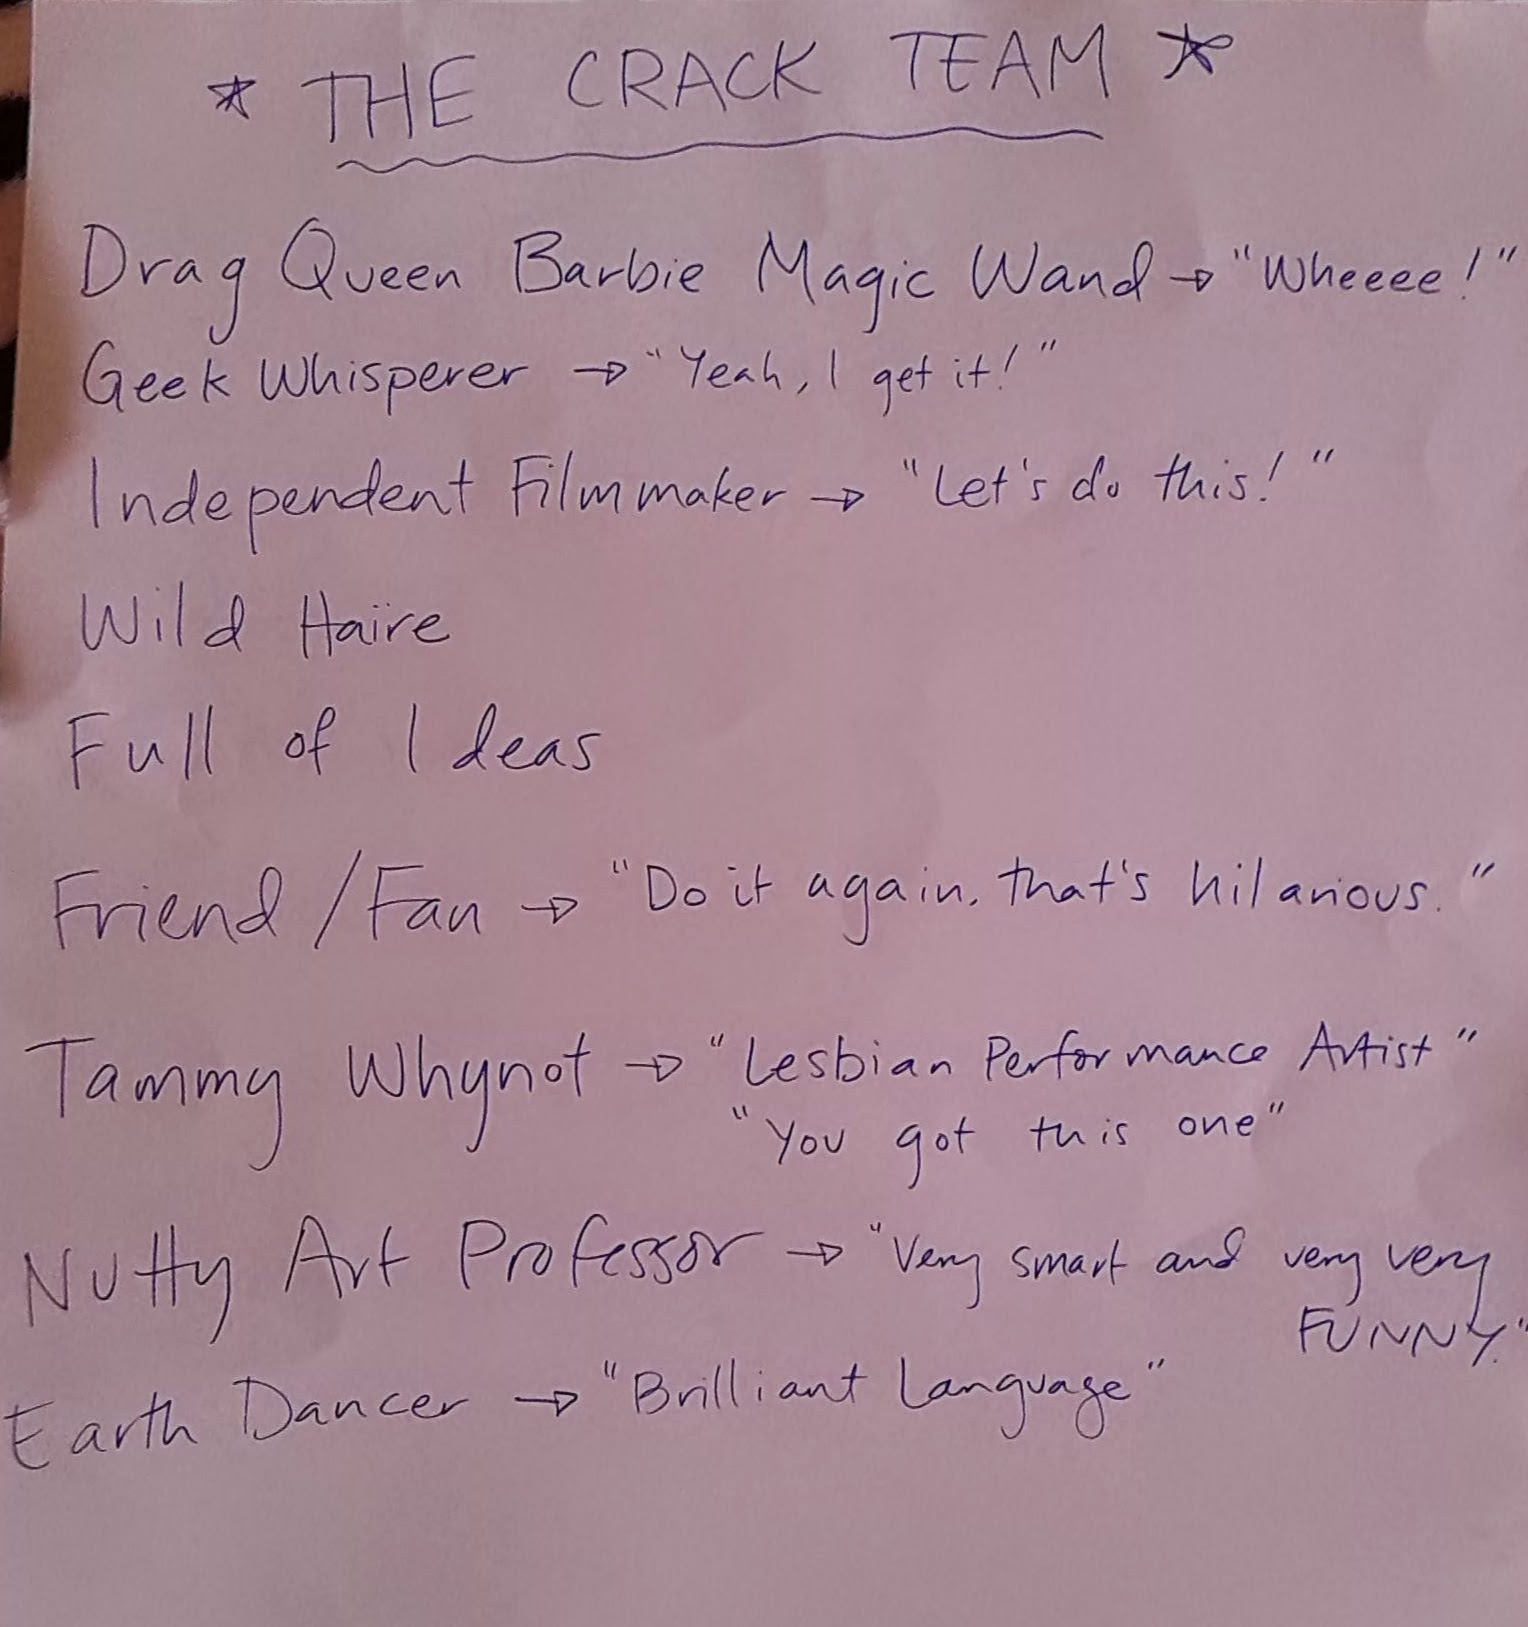 * THE CRACK TEAM *
Drag Queen Barbie Magic Wand → "Wheeee!"
Geek Whisperer → "Yeah, I get it!"
Independent Filmmaker → "Let's do this!"
Wild Haire
Full of Ideas
Friend / Fan → "Do it again, that's hilarious."
Tammy Whynot → "Lesbian Performance Artist"
"You got this one"
Nutty Art Professor → "Very smart and very very
FUNNY."
Earth Dancer → "Brilliant Language"